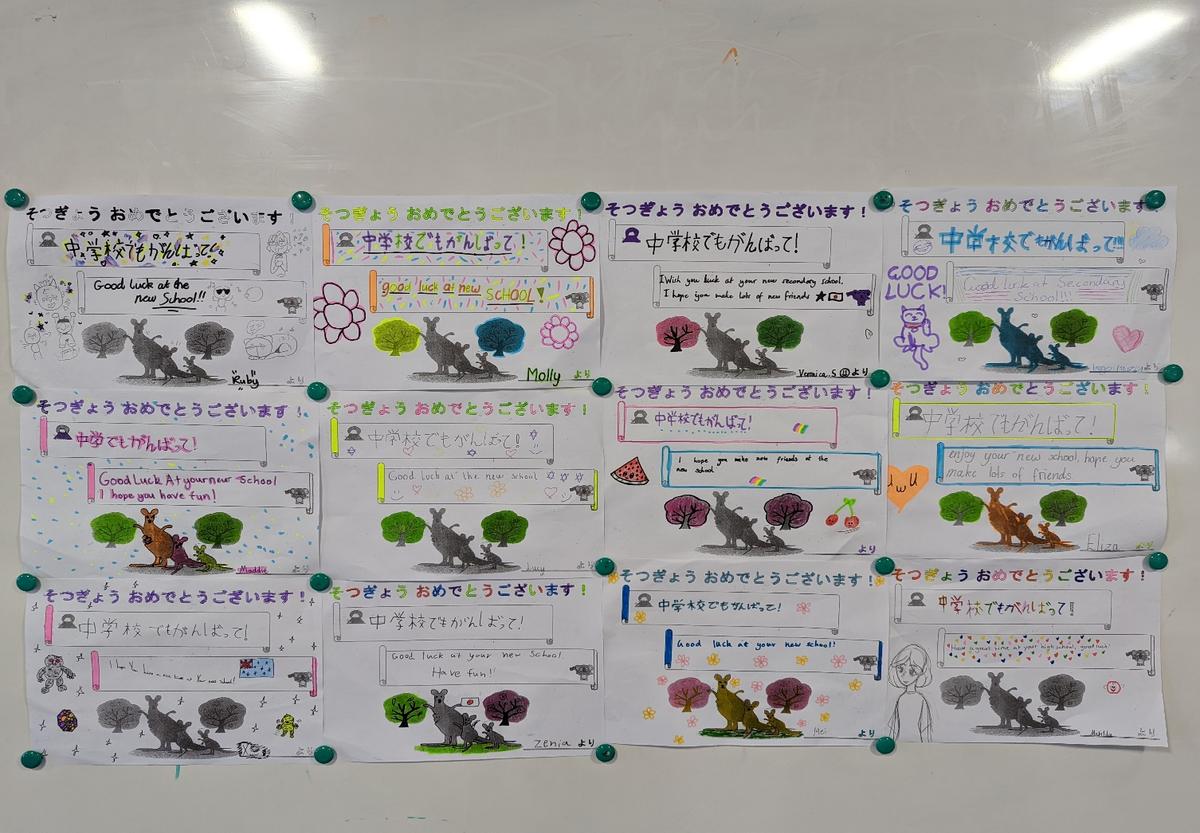 そつぎょう おめでとうございます!
中学校でもがんばって!
Good luck at the
new School!!
"Ruby"
より
そつぎょう おめでとうございます!
中学校でもがんばって!
good luck at new SCHOOL!
Molly より
そつぎょう おめでとうございます!
中学校でもがんばって!
I Wish you luck at your new secondary school.
I hope you make lots of new friends
Veronica.S より
そつぎょう おめでとうございます!
中学校でもがんばって!!!
GOOD
LUCK!
Good luck at Secondary
School!!!
より
そつぎょう おめでとうございます!
中学でもがんばって!
Good Luck At your new School
I hope you have fun!
Maddie より
そつぎょう おめでとうございます!
中学校でもがんばって!
Good luck at the new school
Lucy より
そつぎょう おめでとうございます!
中学校でもがんばって!
I hope you make new friends at the
new school
より
そつぎょう おめでとうございます!
中学校でもがんばって!
enjoy your new school, hope you
make lots of friends.
UwU
Eliza より
そつぎょう おめでとうございます!
中学校でもがんばって!
I hope you have a nice time at your new school!
より
そつぎょう おめでとうございます!
中学校でもがんばって!
Good luck at your new School
Have fun!!
Zenia より
そつぎょう おめでとうございます!
中学校でもがんばって!
Good luck at your new school!
Mei より
そつぎょう おめでとうございます!
中学校でもがんばって!!
Have a great time at your high school, good luck!
Matilda より